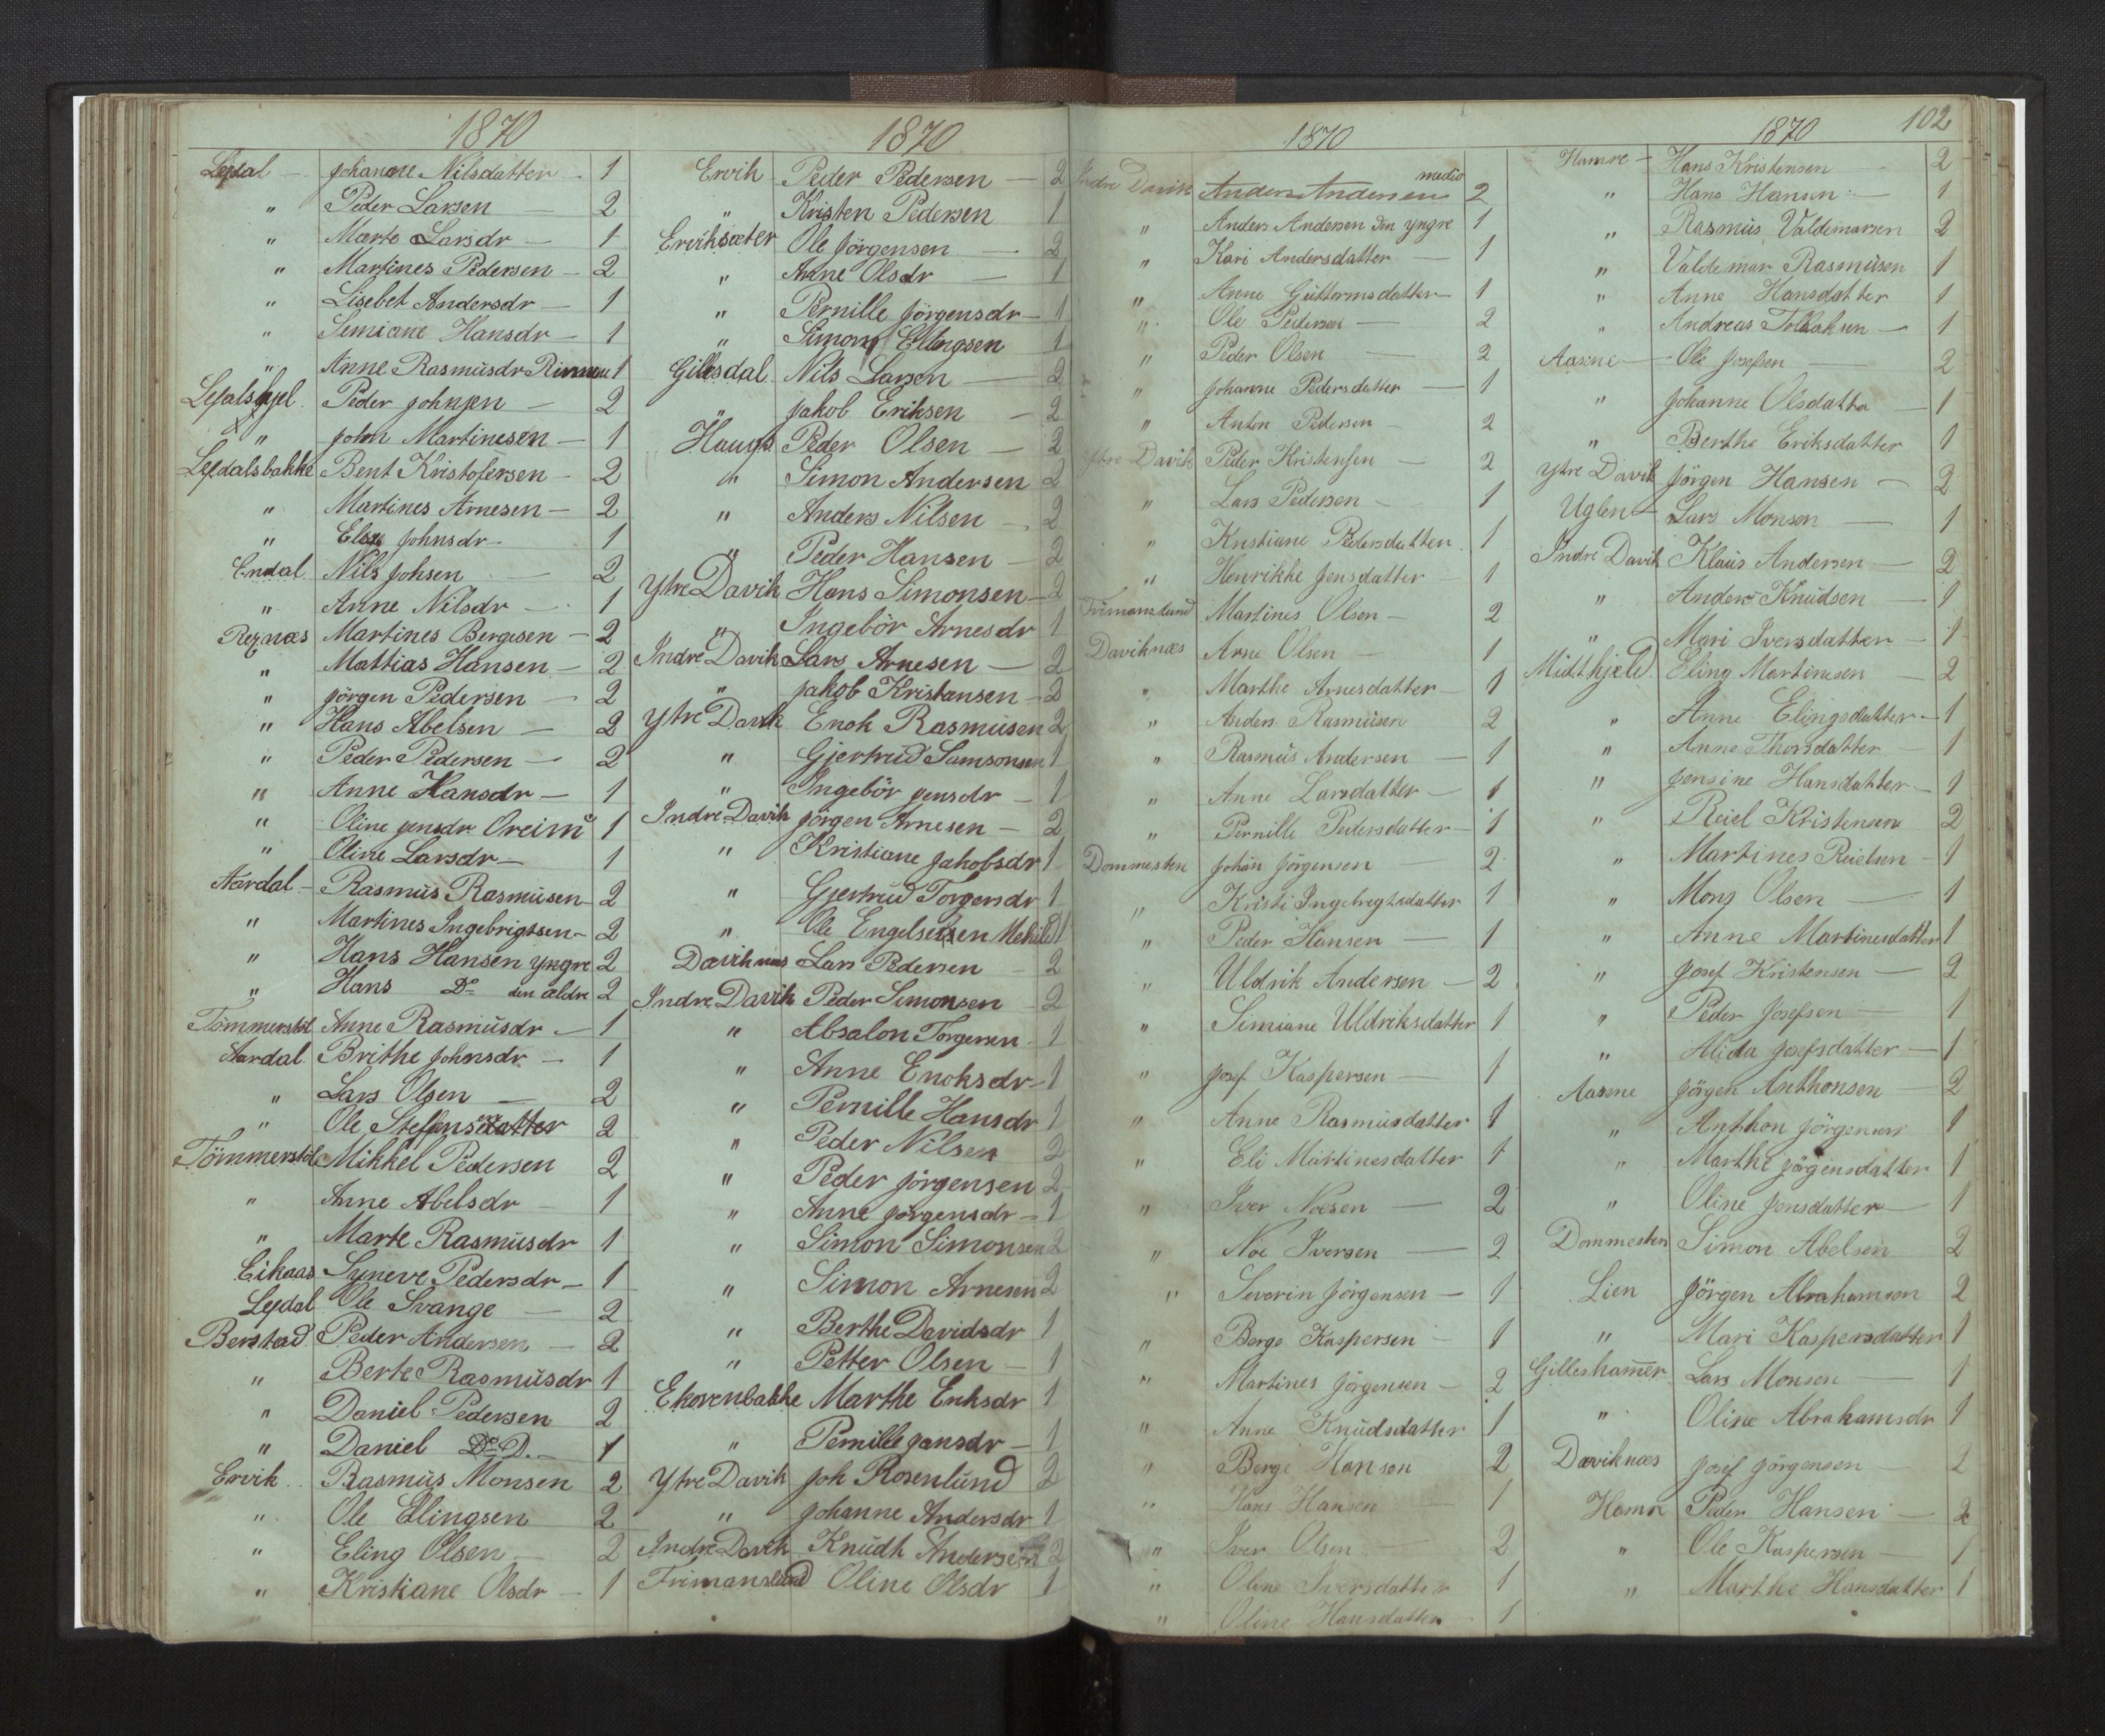 1870
Lejdal — Johanne Nilsdatter — 1
" Peder Larsen — 2
" Marte Larsdr — 1
" Martines Pedersen — 2
" Lisebet Andersdr — 1
" Semiane Hansdr — 1
" Anne Rasmusdr 1
Peder Johnsen — 2
" John Martinesen — 1
Lejdalsbakke Bent Kristofersen — 2
" Martines Arnesen — 2
" Johnsdr — 1
Endal Nils Johsen — 2
" Anne Nilsdr — 1
Martines Bergesen — 2
" Mattias Hansen — 2
" Jörgen Pedersen — 2
" Hans Abelsen — 2
" Peder Pedersen — 2
" Anne Hansdr — 1
" Oline Jensdr 1
" Oline Larsdr — 1
Aardal — Rasmus Rasmusen — 2
" Martines Ingebrigtsen — 2
" Hans Hansen yngre 2
" Hans Do den ældre 2
Tömmerstöl Anne Rasmusdr — 1
Aardal Brithe Johnsdr — 1
" Lars Olsen — 2
" Ole Steffensen 2
Tömmerstöl Mikkel Pedersen 2
" Anne Abelsdr — 1
" Marte Rasmusdr 1
Eikaas Syneve Pedersdr — 1
Lejdal Ole Svange — 2
Berstad Peder Andersen — 2
" Berte Rasmusdr 1
" Daniel Pedersen 2
" Daniel Do D. — 1
Ervik Rasmus Monsen 2
" Ole Elingsen 2
" Eling Olsen — 2
" Kristiane Olsdr — 1
1870
Ervik Peder Pedersen — 2
" Kristen Pedersen 1
Erviksæter Ole Jörgensen — 2
" Anne Olsdr — 1
" Pernille Jörgensdr — 1
" Simon Ellingsen 1
Gillesdal Nils Larsen — 2
" Jakob Eriksen — 2
Hauge Peder Olsen — 2
" Simon Andersen 2
" Anders Nilsen — 2
" Peder Hansen — 2
Ytre Davik Hans Simonsen — 2
" Ingebör Arnesdr 1
Indre Davik Lars Arnesen — 2
" Jakob Kristensen — 2
Ytre Davik Enok Rasmusen 2
" Gjertrud Samsonsen 1
" Ingebör Jensdr — 1
Indre Davik Jörgen Arnesen — 2
" Kristiane Jakobsdr 1
" Gjertrud Torgersdr 1
" Ole Engelsen 1
Daviknæs Lars Pedersen — 2
Indre Davik Peder Simonsen — 2
" Absalon Torgersen — 1
" Anne Enoksdr — 1
" Pernille Hansdr 1
" Peder Nilsen 2
" Peder Jörgensen 2
" Anne Jörgensdr — 1
" Simon Simonsen 2
" Simon Arnesen 2
" Berthe Davidsdr 1
" Petter Olsen — 1
Ekorenbakke Marthe Eriksdr 1
" Pernille Jansdr — 1
Ytre Davik Joh Rosenlund 2
" Johanne Andersdr 1
Indre Davik Knudt Andersen 2
Frimansland Oline Olsdr 1
1870
Indre Davik Anders Andersen medio 2
" Anders Andersen den yngre 1
" Kari Andersdatter — 1
" Anne Guttormsdatter — 1
" Ole Pedersen — 2
" Peder Olsen — 2
" Johanne Pedersdatter — 1
" Anton Pedersen — 2
Ytre Davik Peder Kristensen — 2
" Lars Pedersen — 1
" Kristiane Pedersdatter 1
" Henrikke Jensdatter — 1
Martines Olsen — 2
Daviknæs Arne Olsen — 1
" Marthe Arnesdatter — 1
" Anders Rasmusen 2
" Rasmus Andersen — 1
" Anne Larsdatter — 1
" Pernille Pedersdatter — 1
Dommesten Johan Jörgensen — 2
" Kristi Ingebrigtsdatter 1
" Peder Hansen — 1
" Uldrik Andersen — 2
" Simiane Uldriksdatter 1
" Josef Kaspersen — 1
" Anne Rasmusdatter 1
" Eli Martinesdatter 1
" Iver Noesen — 2
" Noe Iversen — 2
" Severin Jörgensen — 1
" Berge Kaspersen — 1
" Martines Jörgensen — 2
" Anne Knudsdatter 1
" Berge Hansen 2
" Hans Hansen — 1
" Iver Olsen — 2
" Oline Iversdatter 1
" Oline Hansdatter — 1
1870 102
Hamre — Hans Kristensen — 2
" Hans Hansen — 1
" Rasmus Valdemarsen 2
" Valdemar Rasmusen 1
" Anne Hansdatter 1
" Andreas Tollaksen — 1
Aasene — Ole Josefsen — 2
" Johanne Olsdatter — 1
" Berthe Eriksdatter 1
Ytre Davik Jörgen Hansen — 2
Uglen — Lars Monsen — 1
Indre Davik Klaus Andersen — 2
" Anders Knudsen — 1
" Mari Iversdatter — 1
Midthjeld Eling Martinesen — 2
" Anne Elingsdatter — 1
" Anne Thorsdatter — 1
" Jensine Hansdatter — 1
" Reiel Kristensen 2
" Martines Reielsen — 1
" Mons Olsen — 1
" Anne Martinesdatter 1
" Josef Kristensen — 2
" Peder Josefsen — 1
" Alida Josefsdatter — 1
Aasene Jörgen Anthonsen — 2
" Anthon Jörgensen 1
" Marthe Jörgensdatter 1
" Oline Jensdatter — 1
Dommesten Simon Abelsen 2
Lien Jörgen Abrahamsen 2
" Mari Kaspersdatter 1
Gilleshammer Lars Monsen — 1
" Oline Abrahamsdr 1
Daviknæs Josef Jörgensen — 2
Hamre Peder Hansen — 2
" Ole Kaspersen — 1
" Marthe Hansdatter 1